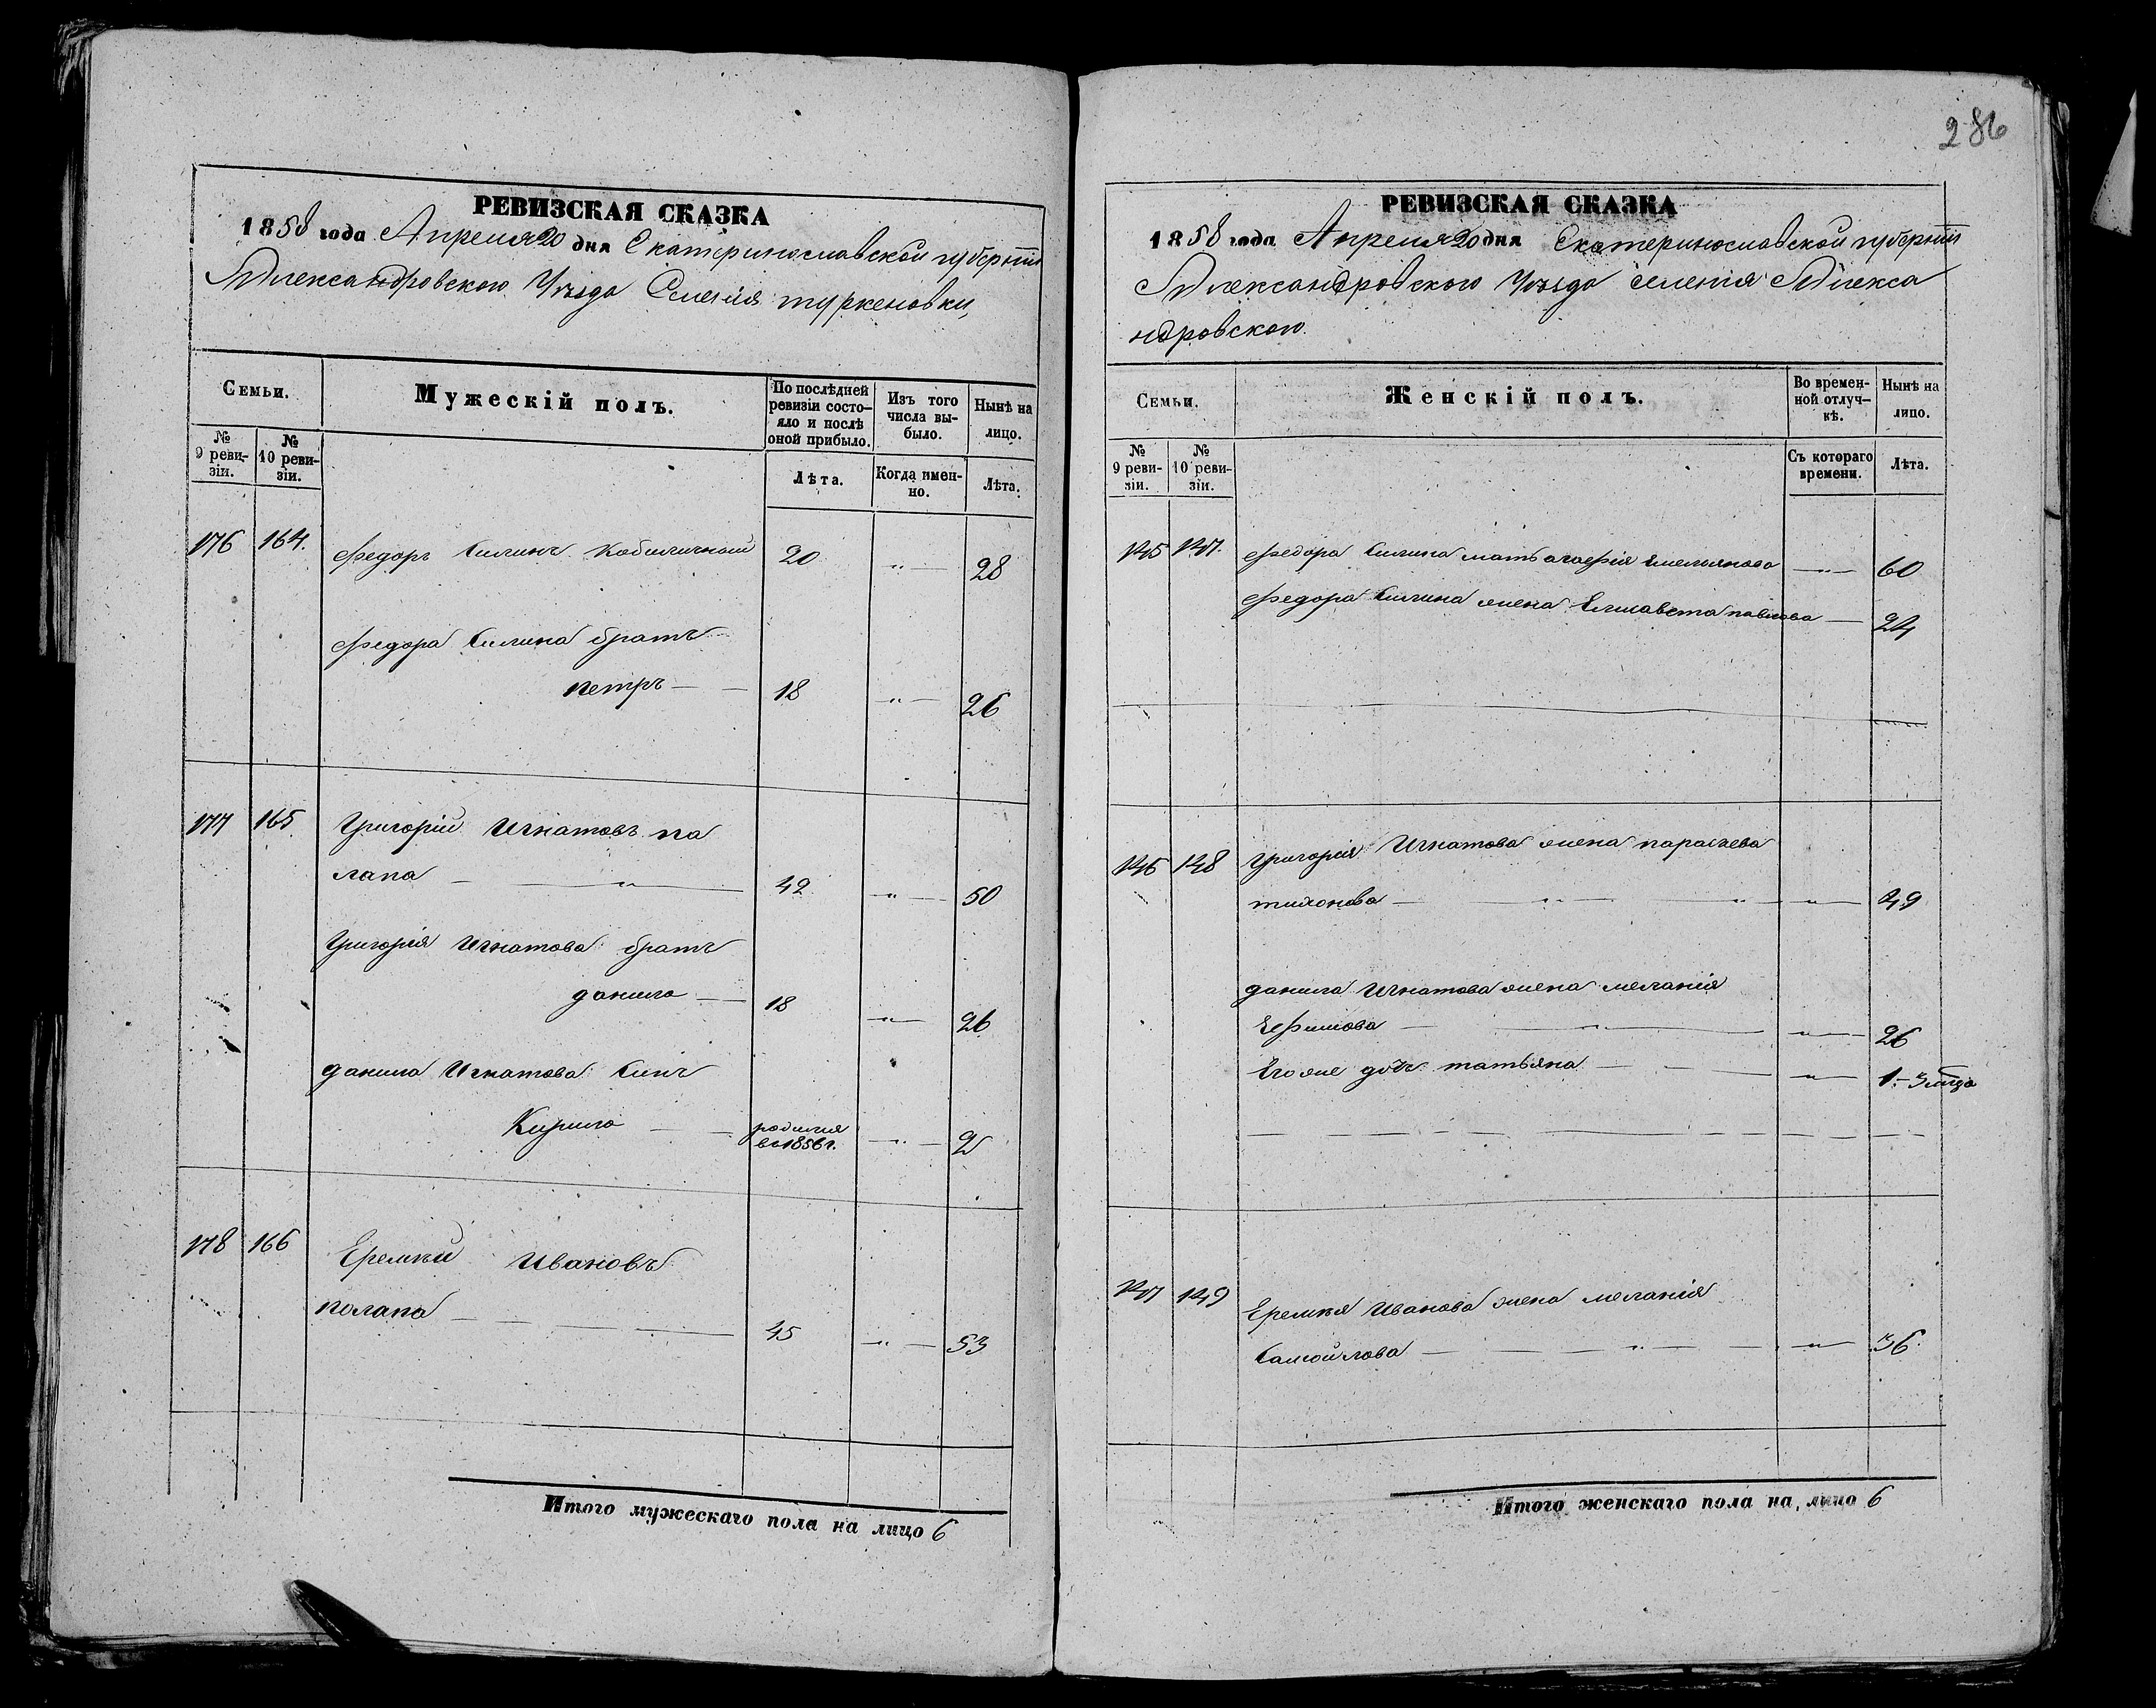 286
РЕВИЗСКАЯ СКАЗКА
1858 года Апреля 20 дня Екатеринославской губернии
Александровского Уѣзда Селенія туркеновки,
Семьи.
Мужескій полъ.
По послѣдней ревизіи состояло и послѣ оной прибыло.
Изъ того числа выбыло.
Нынѣ на лицо.
№ 9 ревизіи.
№ 10 ревизіи.
Лѣта.
Когда именно.
Лѣта.
176 164. Федоръ Силинъ 20 „ 28
Федора Силина братъ
петръ 18 „ 26
177 165. Григорій Игнатовъ па
лапа „ 42 „ 50
Григорія Игнатова братъ
данило 18 „ 26
данила Игнатова Синъ
Кирило родился во 1856 г. „ 2
178 166 Еремѣй Ивановъ
полапа 45 „ 53
Итого мужескаго пола на лицо 6
РЕВИЗСКАЯ СКАЗКА
1858 года Апреля 20 дня Екатеринославской губерніи
Александровского Уѣзда селенія Алекса
ндровского.
Семьи.
Женскій полъ.
Во временной отлучкѣ.
Нынѣ на лицо.
№ 9 ревизіи.
№ 10 ревизіи.
Съ котораго времени.
Лѣта.
145 147. Федора Силина мать Емельянова „ 60
Федора Силина жена Елисавета павлова 24
146 148 Григорія Игнатова жена параскева
тихонова „ „ „ 49
данила Игнатова жена меланія
Ефимова „ „ 26
Его же дочь татьяна „ 1.
147 149 Еремѣя Иванова жена меланія
Самойлова „ „ 36.
Итого женскаго пола на лицо 6